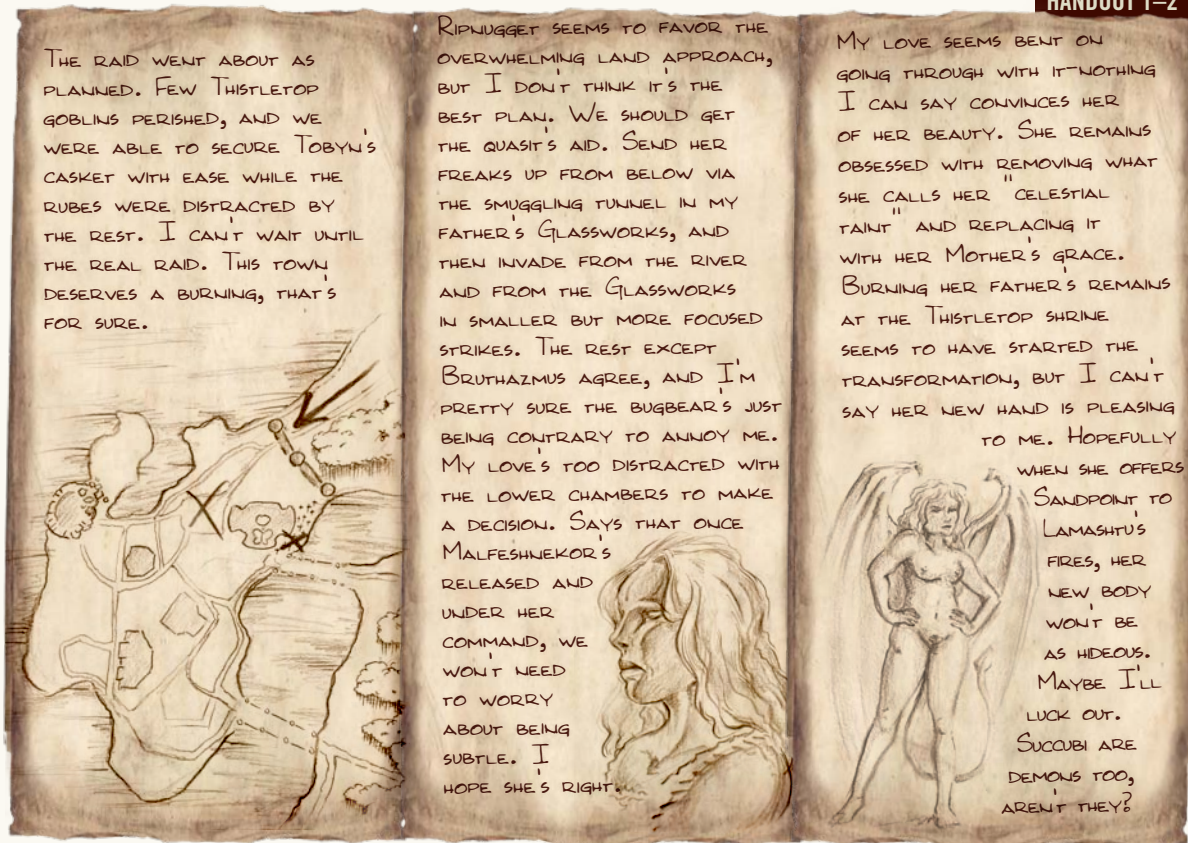 HANDOUT 1–2
THE RAID WENT ABOUT AS
PLANNED. FEW THISTLETOP
GOBLINS PERISHED, AND WE
WERE ABLE TO SECURE TOBYN'S
CASKET WITH EASE WHILE THE
RUBES WERE DISTRACTED BY
THE REST. I CAN'T WAIT UNTIL
THE REAL RAID. THIS TOWN
DESERVES A BURNING, THAT'S
FOR SURE.
RIPNUGGET SEEMS TO FAVOR THE
OVERWHELMING LAND APPROACH,
BUT I DON'T THINK IT'S THE
BEST PLAN. WE SHOULD GET
THE QUASIT'S AID. SEND HER
FREAKS UP FROM BELOW VIA
THE SMUGGLING TUNNEL IN MY
FATHER'S GLASSWORKS, AND
THEN INVADE FROM THE RIVER
AND FROM THE GLASSWORKS
IN SMALLER BUT MORE FOCUSED
STRIKES. THE REST EXCEPT
BRUTHAZMUS AGREE, AND I'M
PRETTY SURE THE BUGBEAR'S JUST
BEING CONTRARY TO ANNOY ME.
MY LOVE'S TOO DISTRACTED WITH
THE LOWER CHAMBERS TO MAKE
A DECISION. SAYS THAT ONCE
MALFESHNEKOR'S
RELEASED AND
UNDER HER
COMMAND, WE
WON'T NEED
TO WORRY
ABOUT BEING
SUBTLE. I
HOPE SHE'S RIGHT.
MY LOVE SEEMS BENT ON
GOING THROUGH WITH IT–NOTHING
I CAN SAY CONVINCES HER
OF HER BEAUTY. SHE REMAINS
OBSESSED WITH REMOVING WHAT
SHE CALLS HER "CELESTIAL
TAINT" AND REPLACING IT
WITH HER MOTHER'S GRACE.
BURNING HER FATHER'S REMAINS
AT THE THISTLETOP SHRINE
SEEMS TO HAVE STARTED THE
TRANSFORMATION, BUT I CAN'T
SAY HER NEW HAND IS PLEASING
TO ME. HOPEFULLY
WHEN SHE OFFERS
SANDPOINT TO
LAMASHTU'S
FIRES, HER
NEW BODY
WON'T BE
AS HIDEOUS.
MAYBE I'LL
LUCK OUT.
SUCCUBI ARE
DEMONS TOO,
AREN'T THEY?